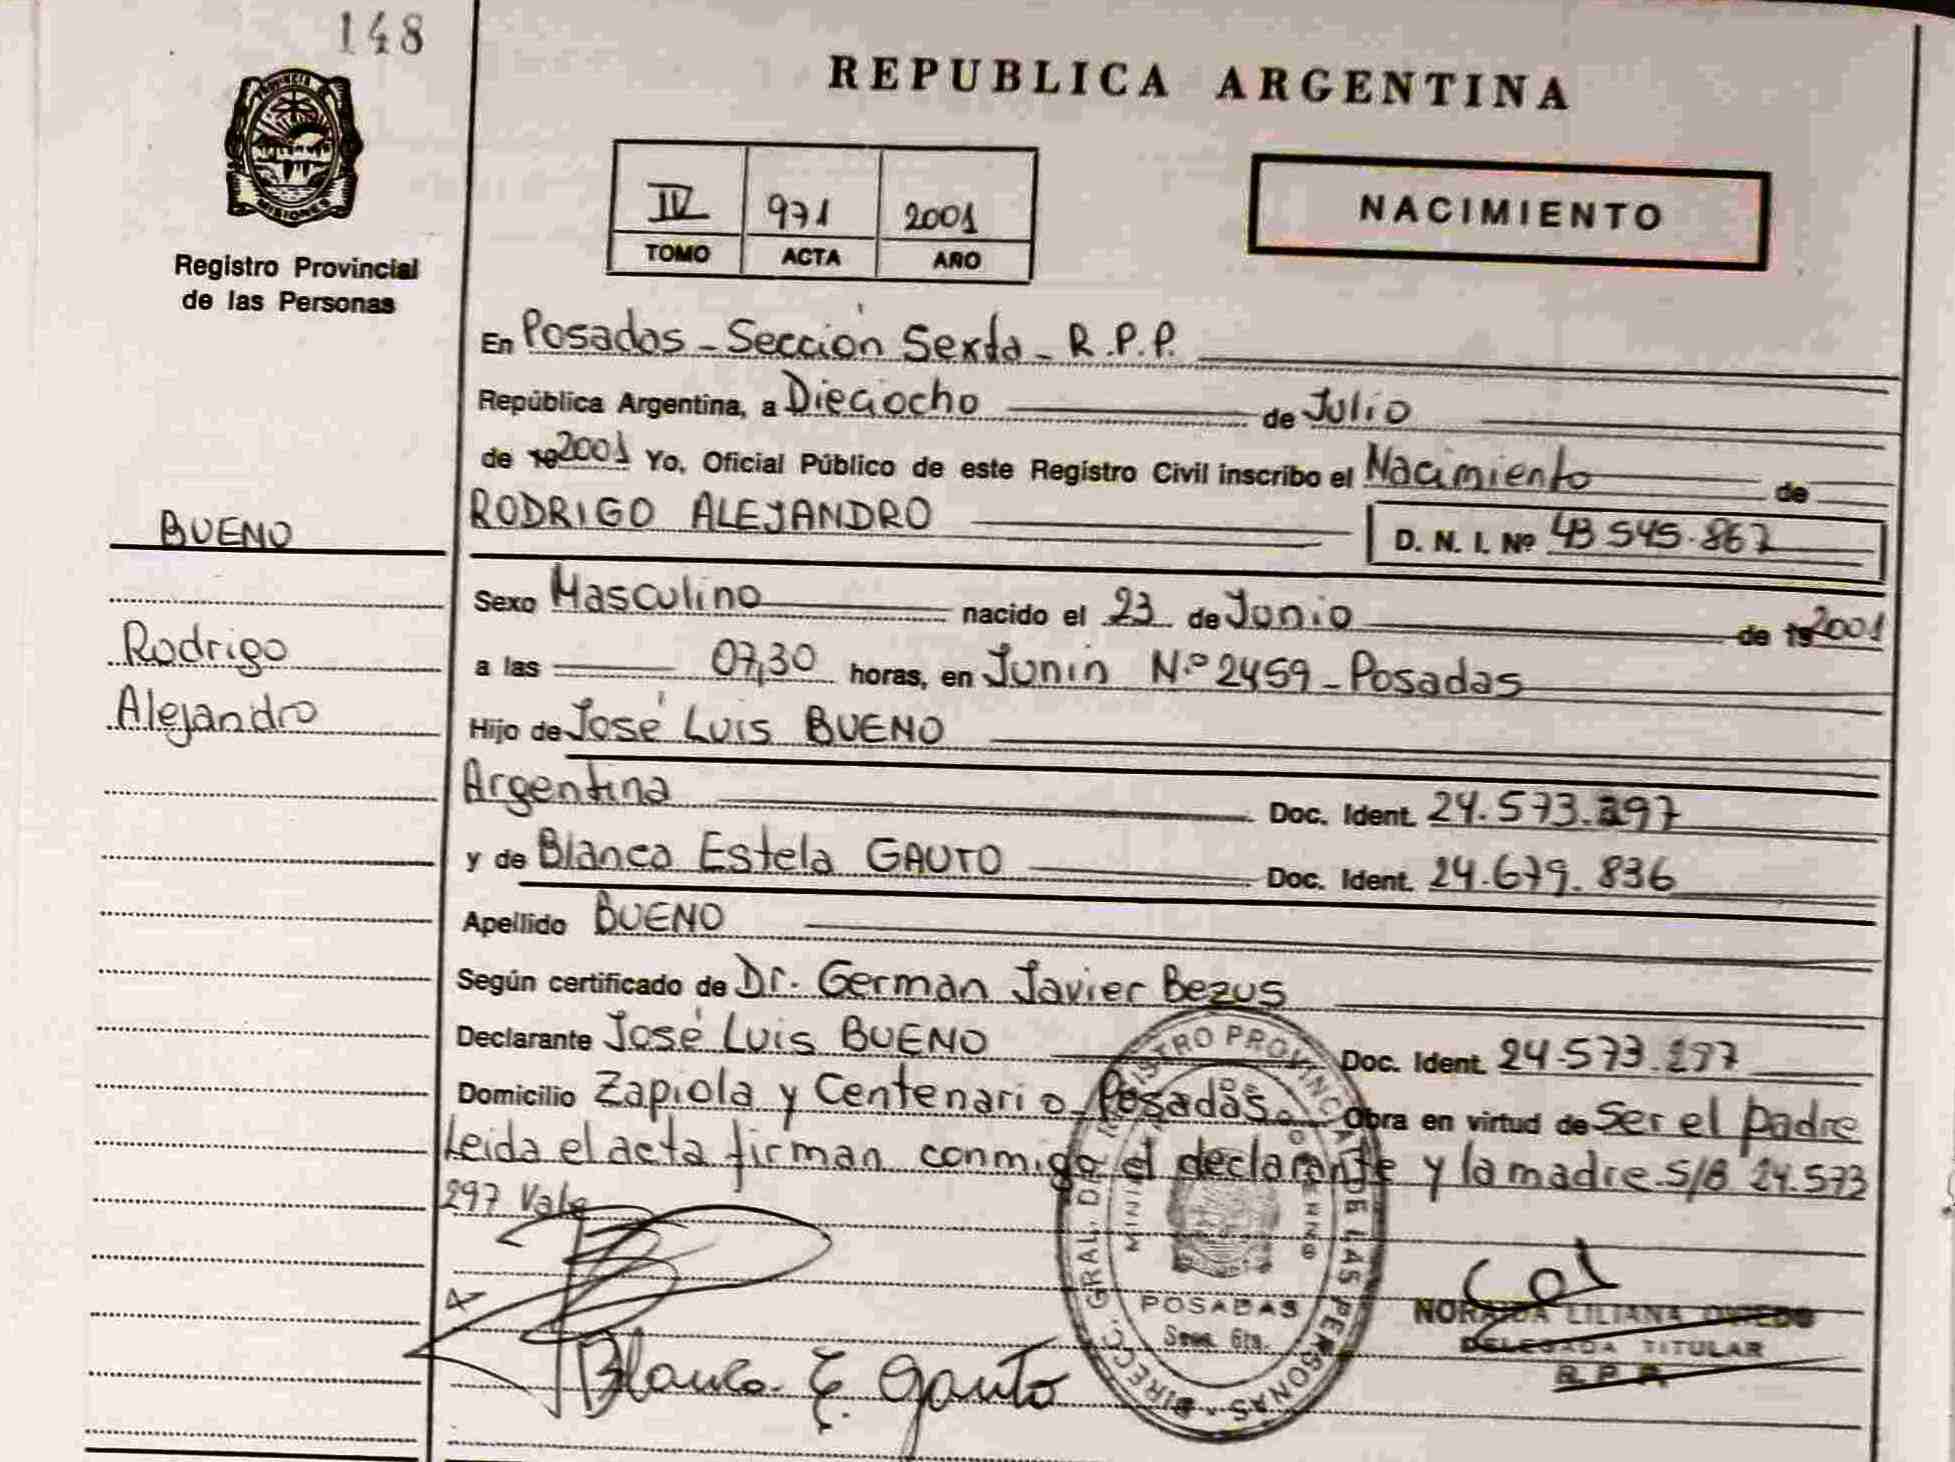 148
PROVINCIA DE
MISIONES
Registro Provincial
de las Personas
REPUBLICA ARGENTINA
IV 971 2001
TOMO ACTA AÑO
NACIMIENTO
En Posadas - Sección Sexta - R.P.P.
República Argentina, a Dieciocho de Julio
de 19 2001 Yo, Oficial Público de este Registro Civil inscribo el Nacimiento de
BUENO
RODRIGO ALEJANDRO D. N. I. Nº 43.545.867
Sexo Masculino nacido el 23 de Junio de 19 2001
Rodrigo
a las 07,30 horas, en Junin Nº 2459 - Posadas
Alejandro
Hijo de José Luis BUENO
Argentina Doc. Ident. 24.573.297
y de Blanca Estela GAUTO Doc. Ident. 24.679.836
Apellido BUENO
Según certificado de Dr. German Javier Bezus
Declarante José Luis BUENO Doc. Ident. 24.573.297
Domicilio Zapiola y Centenario - Posadas. Obra en virtud de Ser el padre
Leida el acta firman conmigo el declarante y la madre. S/B 24.573
297 Vale
Blanca E. Gauto
DIRECC. GRAL. DEL REGISTRO PROVINCIAL DE LAS PERSONAS
MINISTERIO DE GOBIERNO
POSADAS
Secc. 6ta.
NORAIDA LILIANA OVIEDO
DELEGADA TITULAR
R. P. P.